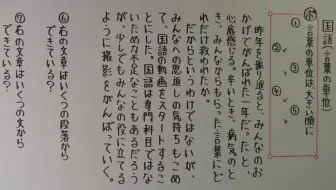 国語(言葉の単位)
ポ 言葉の単位は大きい順に
①
↓
②
↓
③
↓
④
↓
⑤
昨年を振り返ると、みんなのお
かげでがんばれた一年だったと、
心底感じる。辛いとき、病気のと
き、みんなからもらった言葉にど
れだけ救われたか。
だからというわけではないが、
みんなへの恩返しの気持ちもこめ
て、国語の動画をスタートするこ
とにした。国語は専門科目ではな
いため力不足なこともあるだろう
が、少しでもみんなの役に立てる
ように撮影をがんばっていく。
⑥右の文章はいくつの段落から
できている?
⑦右の文章はいくつの文から
できている?